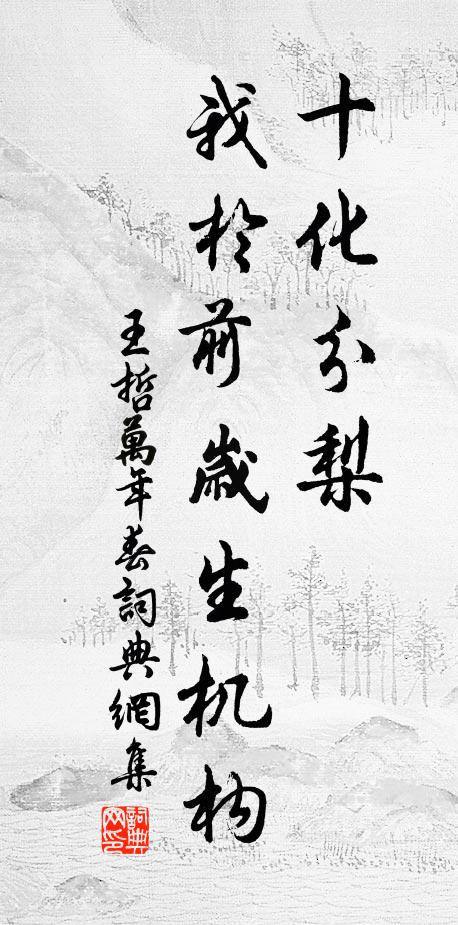 十化分梨
我於前歲生机构
王哲萬年春詞典網集
詞典网印